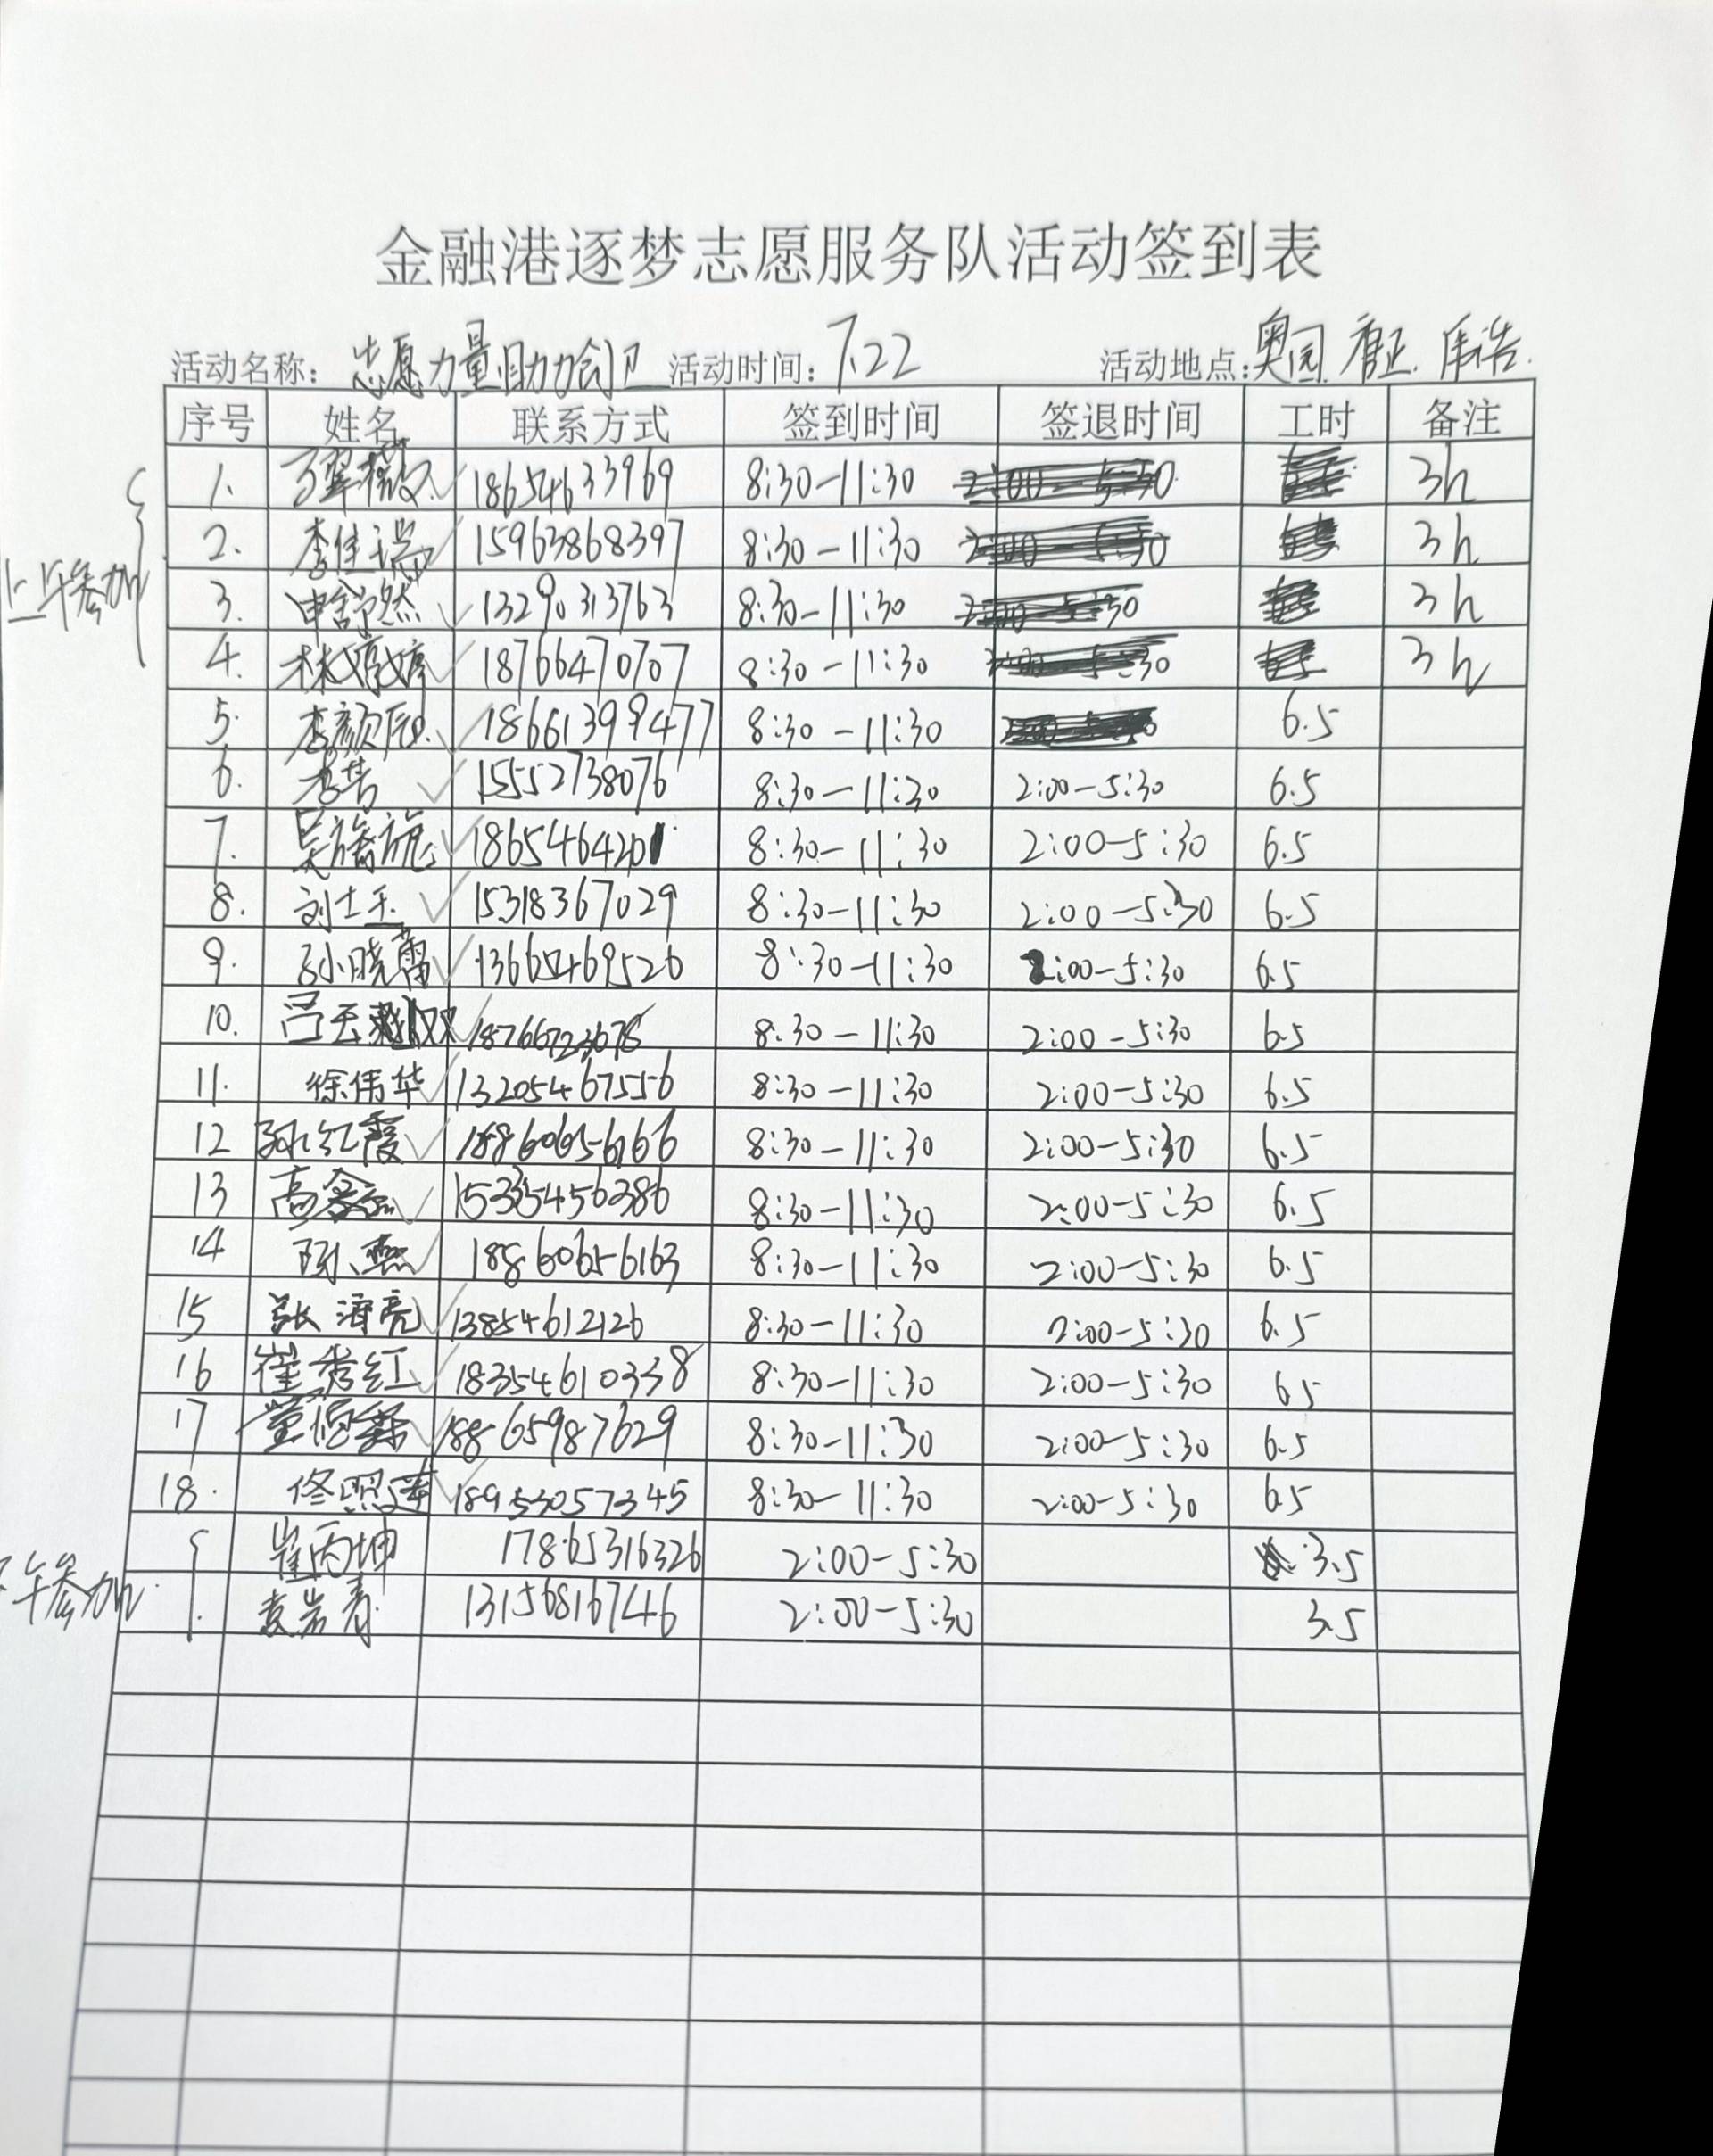 金融港逐梦志愿服务队活动签到表
活动名称: 志愿力量助力创卫 活动时间: 7.22 活动地点: 奥园
序号 姓名 联系方式 签到时间 签退时间 工时 备注
上午参加
1. 18654633969 8:30-11:30 3h
2. 李佳瑞 15963868397 8:30-11:30 3h
3. 申舒然 13290313763 8:30-11:30 3h
4. 林婷婷 18766470707 8:30-11:30 3h
5. 李颜辰 18661399477 8:30-11:30 6.5
6. 李芸 15552738076 8:30-11:30 2:00-5:30 6.5
7. 1865464201 8:30-11:30 2:00-5:30 6.5
8. 刘士玉 15318367029 8:30-11:30 2:00-5:30 6.5
9. 孙晓蕾 13665469526 8:30-11:30 2:00-5:30 6.5
10. 18766723678 8:30-11:30 2:00-5:30 6.5
11. 徐伟华 13205467556 8:30-11:30 2:00-5:30 6.5
12 孙红霞 18860656166 8:30-11:30 2:00-5:30 6.5
13 高鑫 15335456386 8:30-11:30 2:00-5:30 6.5
14 陈燕 18860656163 8:30-11:30 2:00-5:30 6.5
15 张海亮 13854612126 8:30-11:30 2:00-5:30 6.5
16 崔秀红 18354610338 8:30-11:30 2:00-5:30 6.5
17 18865987629 8:30-11:30 2:00-5:30 6.5
18. 佟照莲 18953057345 8:30-11:30 2:00-5:30 6.5
下午参加
崔丙坤 17865316326 2:00-5:30 3.5
袁岩青 13156816746 2:00-5:30 3.5